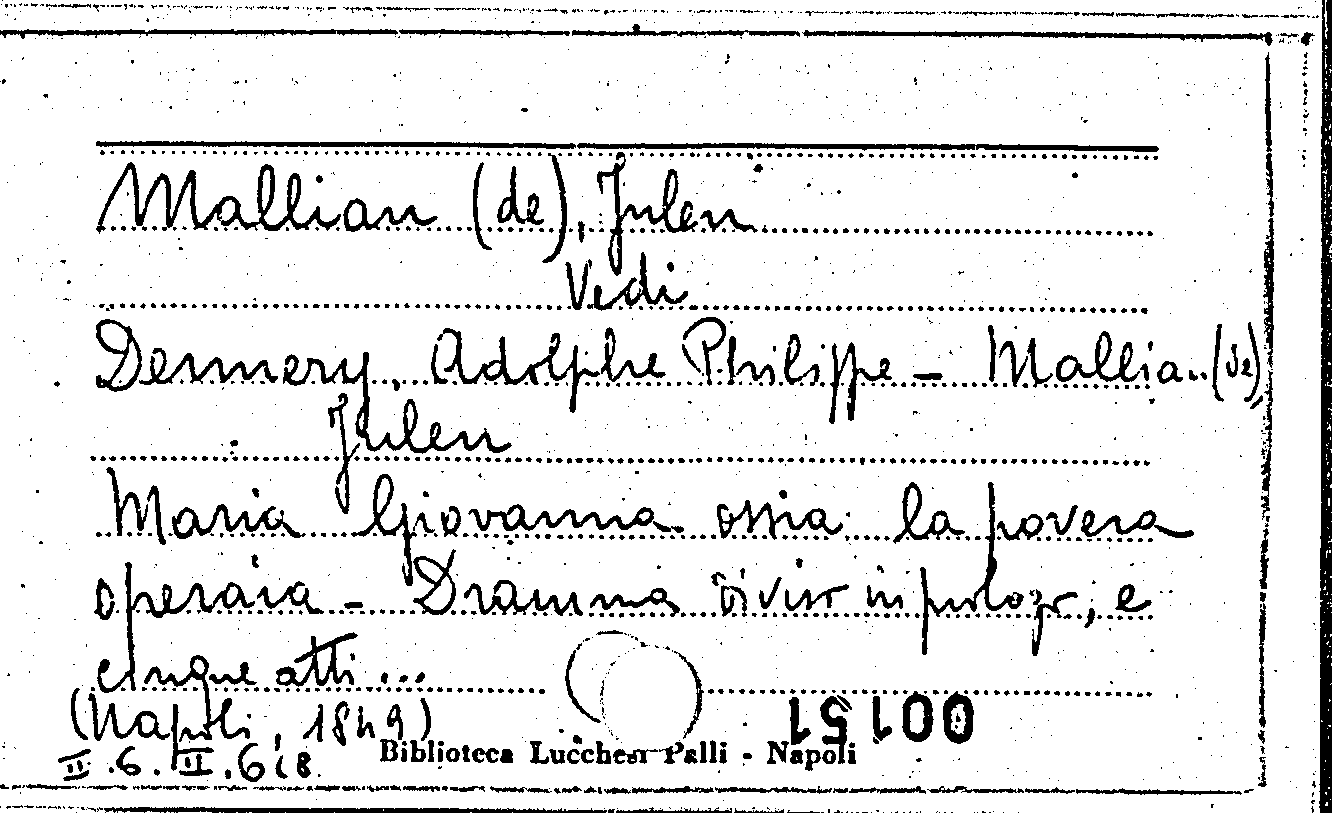 Mallian (de), Julen
Vedi
Dennery, Adolphe Philippe - Mallian (de),
Julen
Maria Giovanna ossia la povera
operaia - Dramma diviso in prologo, e
cinque atti ...
(Napoli, 1849)
00151
Biblioteca Lucchesi Palli - Napoli
II.6.II.6(8